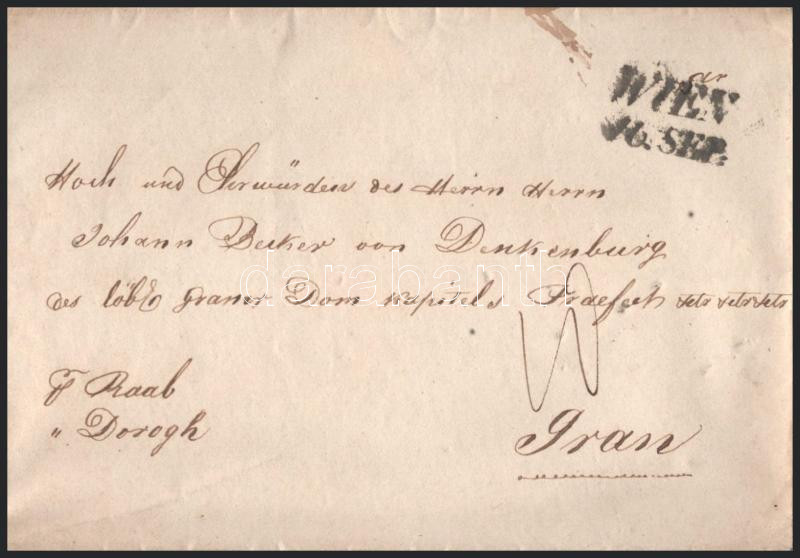 WIEN
16. SEP.
Hoch und Ehrwürden des Herrn Herrn
Johann Becker von Denkenburg
des löbl graner Dom kapitels Praefect
Raab
" Dorogh
Gran
darabanth